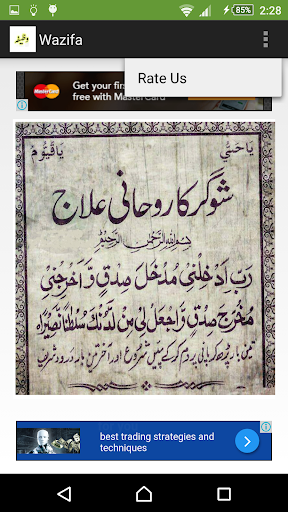 85% 2:28
وظیفہ Wazifa
Rate Us
MasterCard Get your firs
free with MasterCard
یا حَیُّ یا قَیُّومُ
شوگر کا روحانی علاج
بِسْمِ اللهِ الرَّحْمٰنِ الرَّحِيْمِ
رَبِّ اَدْخِلْنِیْ مُدْخَلَ صِدْقٍ وَّ اَخْرِجْنِیْ
مُخْرَجَ صِدْقٍ وَّاجْعَلْ لِّیْ مِنْ لَّدُنْكَ سُلْطَانًا نَّصِیْرًا
تین بار پڑھ کر پانی پر دم کر کے پئیں شروع اور آخر تین بار درود شریف
best trading strategies and
techniques